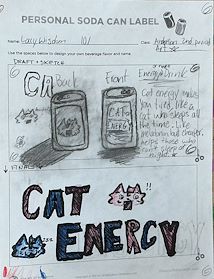 PERSONAL SODA CAN LABEL
Name: Lacy Wisdom 101
Date:
2nd period
Art
Use the spaces below to design your own beverage flavor and name.
DRAFT + SKETCH
CA
Back
Front
Energy Drink
Cat energy makes
you tired, like a
cat who sleeps all
the time. Like
melatonin but cheaper,
helps those who
can't sleep at
night.
CAT
ENERGY
FINAL
CAT
ENERGY
!!